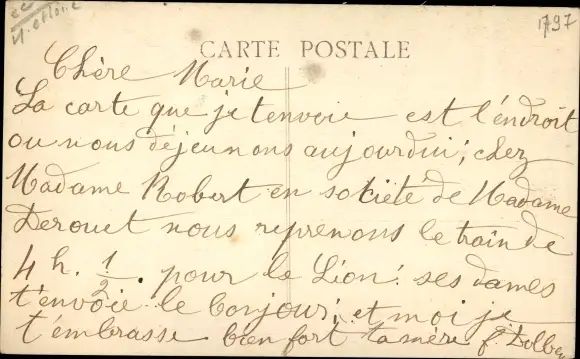 1797
CARTE POSTALE
Chère Marie
La carte que je t'envoie est l'endroit
ou nous déjeunons aujourdui; chez
Madame Robert en societé de Madame
Derouet nous reprenons le train de
4 h. 1/2. pour le Lion. ses dames
t'envoie le bonjour; et moi je
t'embrasse bien fort ta mère f. Dolbe